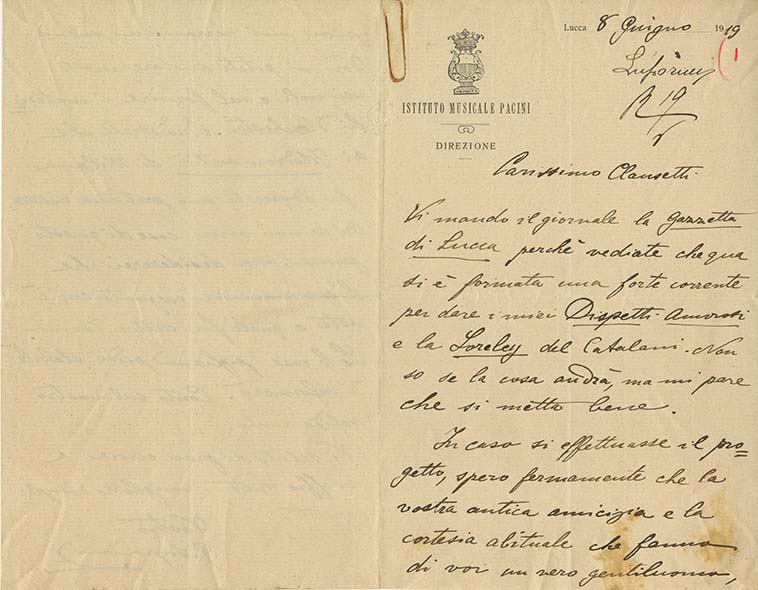 Lucca 8 Giugno 1919
ISTITUTO MUSICALE PACINI
DIREZIONE
R 19/
Carissimo Clausetti
Vi mando il giornale la Gazzetta
di Lucca perchè vediate che qua
si è formata una forte corrente
per dare i miei Dispetti Amorosi
e la Loreley del Catalani. Non
so se la cosa andrà, ma mi pare
che si metta bene.
In caso si effettuasse il pro=
getto, spero fermamente che la
vostra antica amicizia e la
cortesia abituale che fanno
di voi un vero gentiluomo,